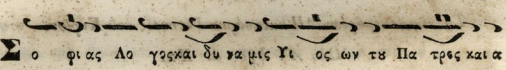 Σο φι ας Λο γος και δυ να μις Υι ος ων του Πα τρος και α